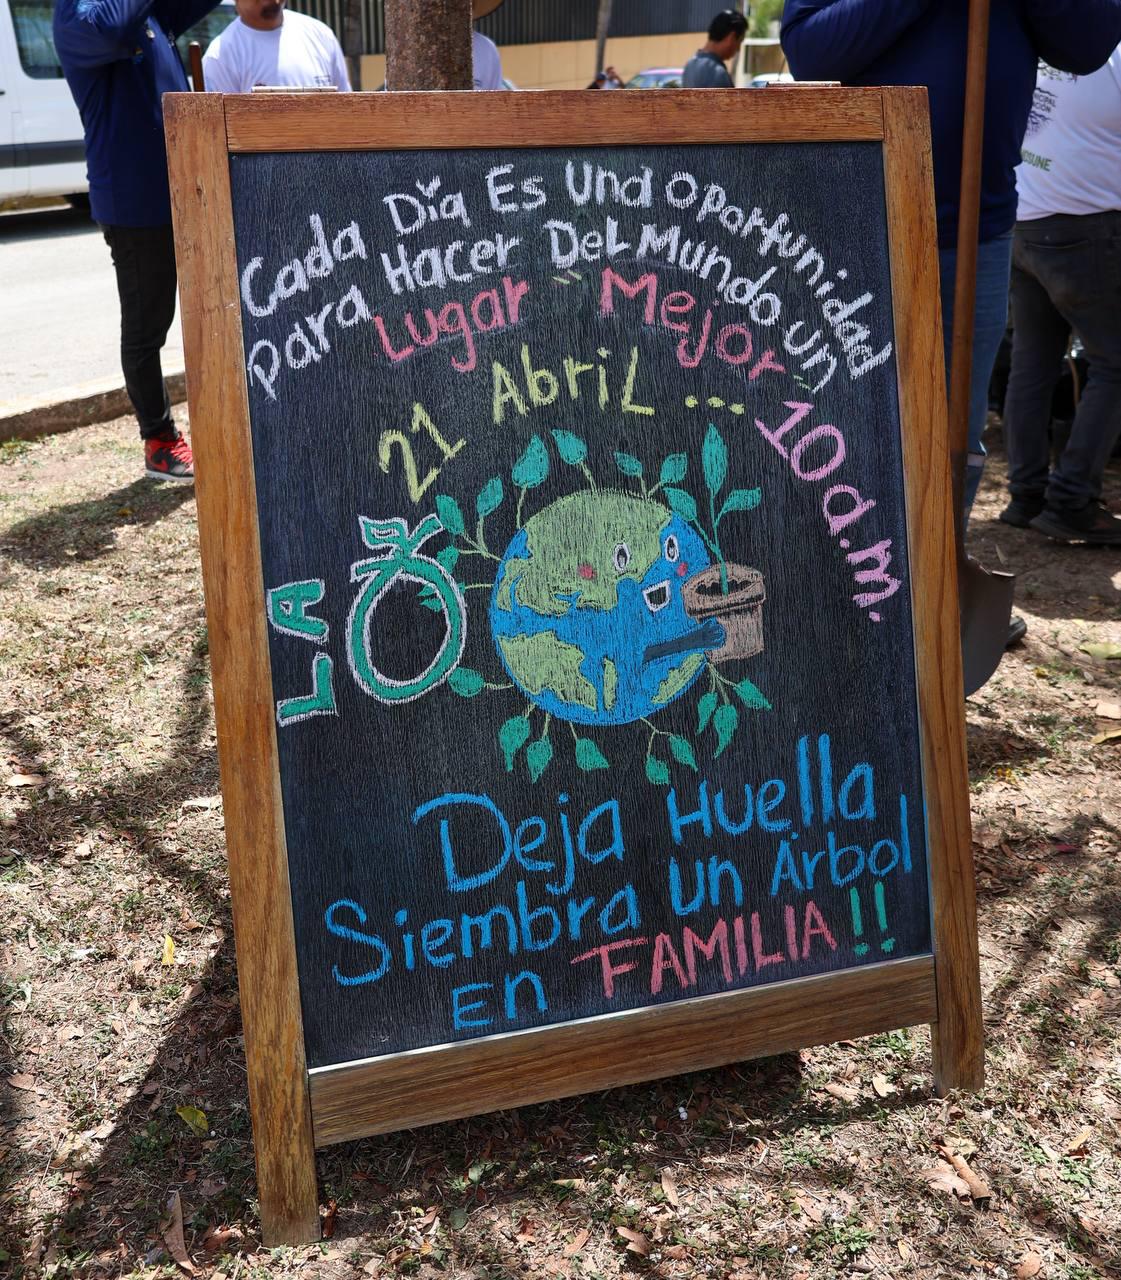 Cada Día Es Una Oportunidad
para Hacer Del Mundo un
Lugar "Mejor"
21 Abril ... 10a.m.
LA
Deja Huella
Siembra Un Árbol
En FAMILIA!!